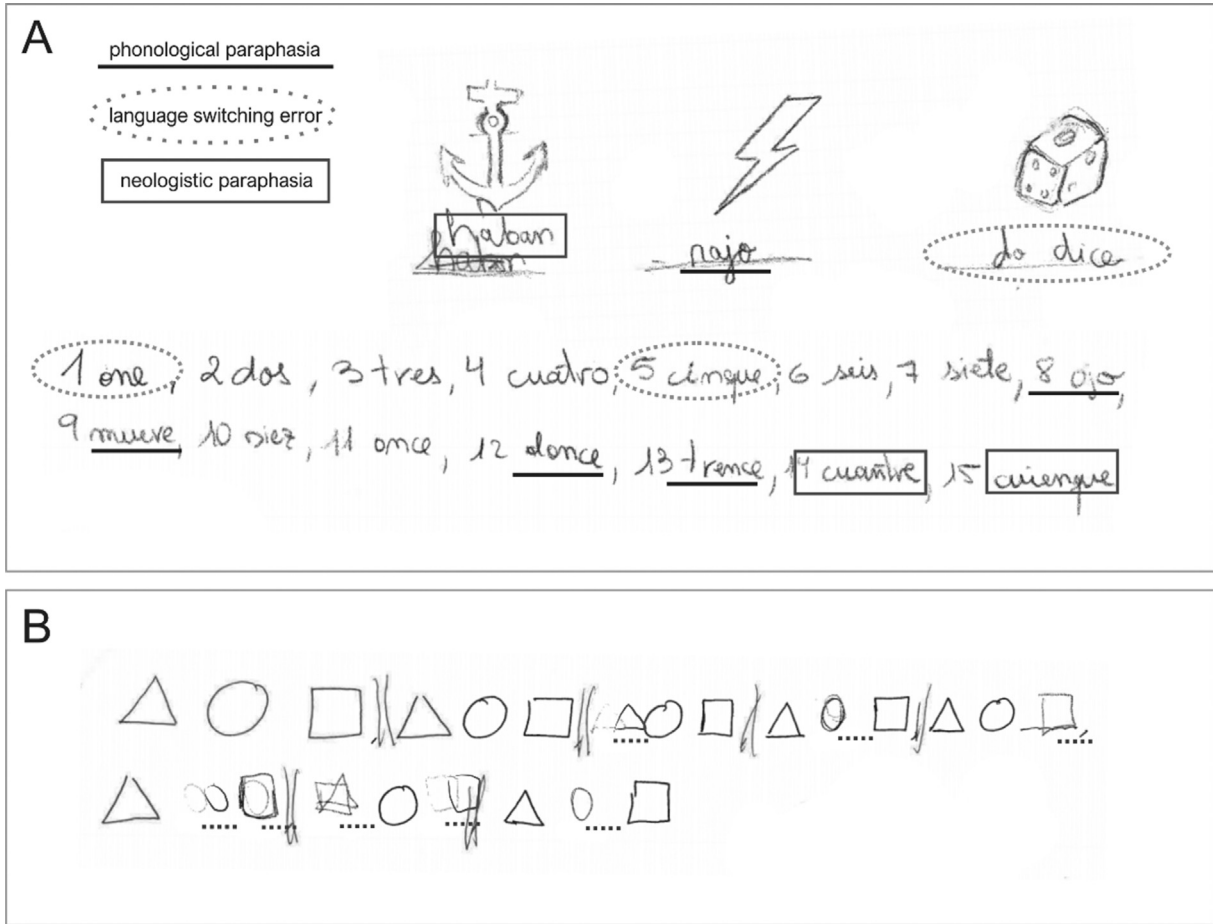 A
phonological paraphasia
language switching error
neologistic paraphasia
haban
rajo
do dice
1 one, 2 dos, 3 tres, 4 cuatro, 5 cinque, 6 seis, 7 siete, 8 ojo,
9 mueve, 10 diez, 11 once, 12 donce, 13 trence, 14 cuantre, 15 cuienque
B